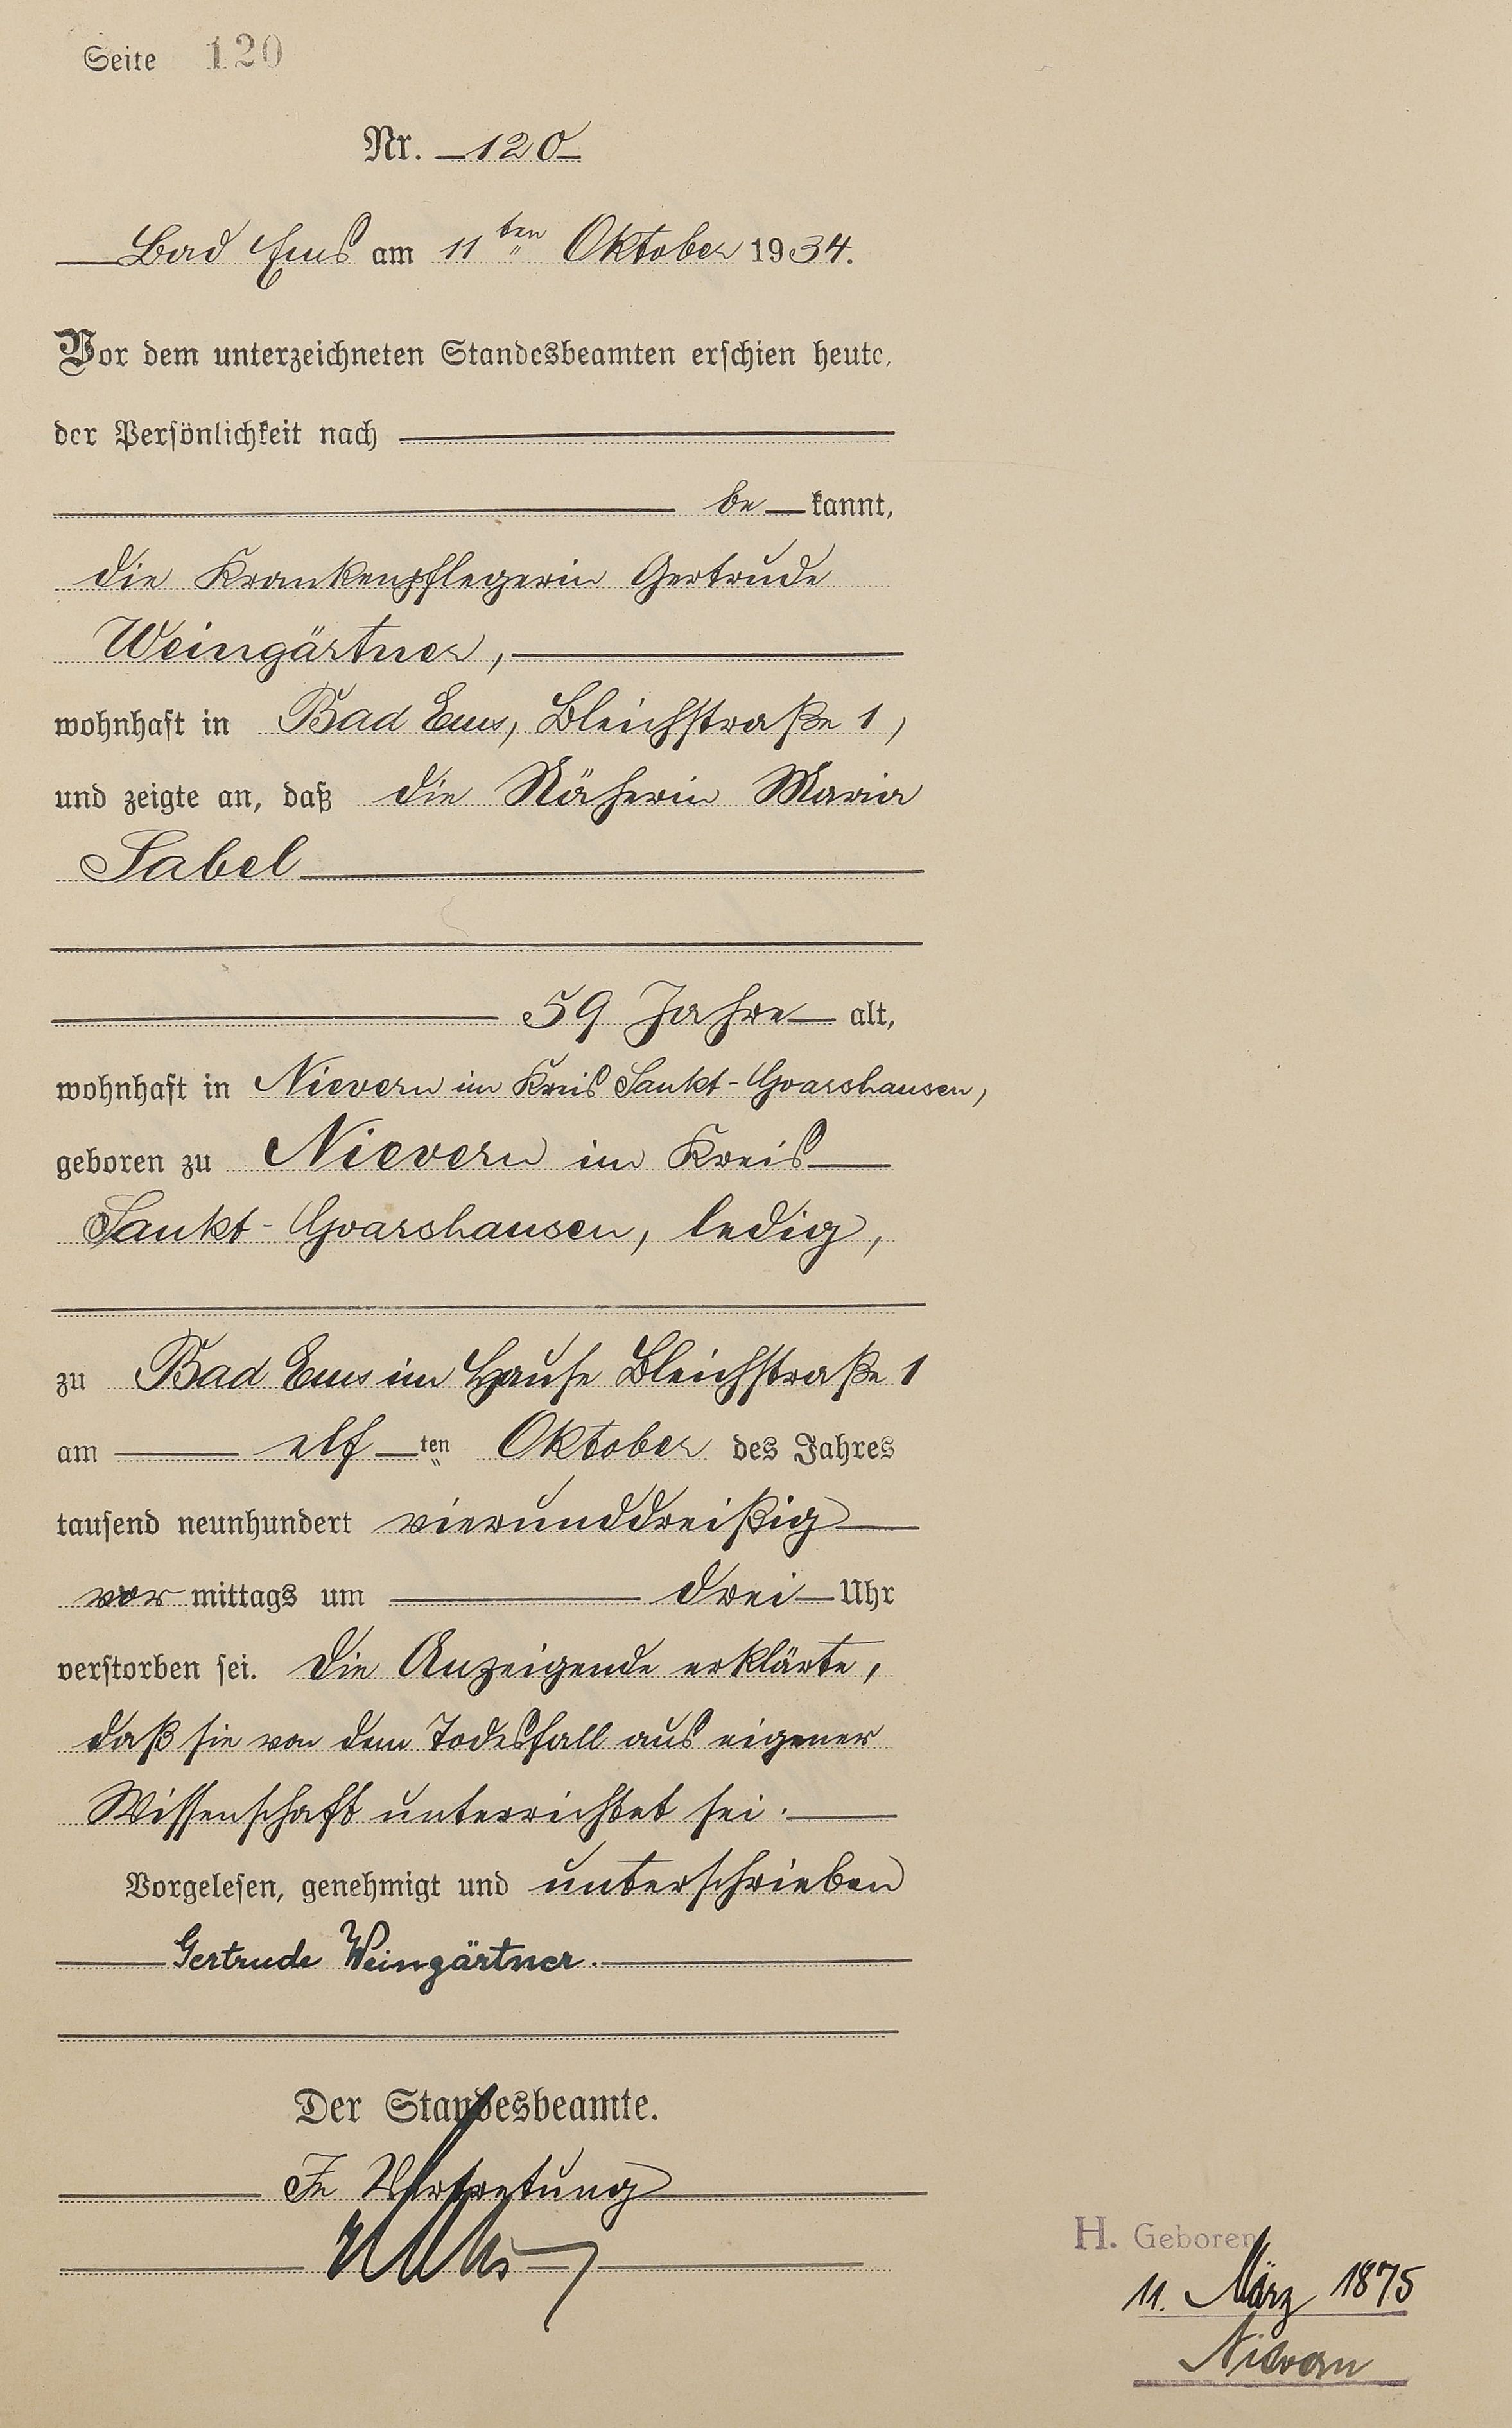 Seite 120
Nr. 120
Bad Ems am 11ten Oktober 1934.
Vor dem unterzeichneten Standesbeamten erschien heute,
der Persönlichkeit nach
be kannt,
die Krankenpflegerin Gertrude
Weingärtner,
wohnhaft in Bad Ems, Bleichstraße 1,
und zeigte an, daß die Näherin Maria
Sabel
59 Jahre alt,
wohnhaft in Nievern im Kreis Sankt-Goarshausen,
geboren zu Nievern im Kreis
Sankt-Goarshausen, ledig,
zu Bad Ems im Hause Bleichstraße 1
am elf ten Oktober des Jahres
tausend neunhundert vierunddreißig
vor mittags um drei Uhr
verstorben sei. Die Anzeigende erklärte,
daß sie von dem Todesfall aus eigener
Wissenschaft unterrichtet sei.
Vorgelesen, genehmigt und unterschrieben
Gertrude Weingärtner.
Der Standesbeamte.
In Vertretung
H. Geboren
11. März 1875
Nievern